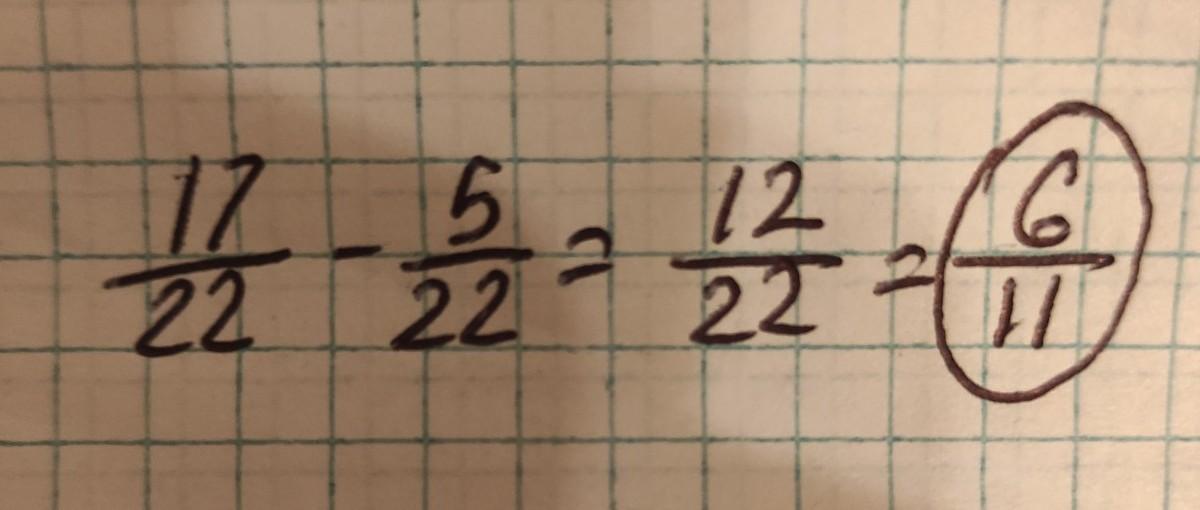 17/22 - 5/22 = 12/22 = 6/11